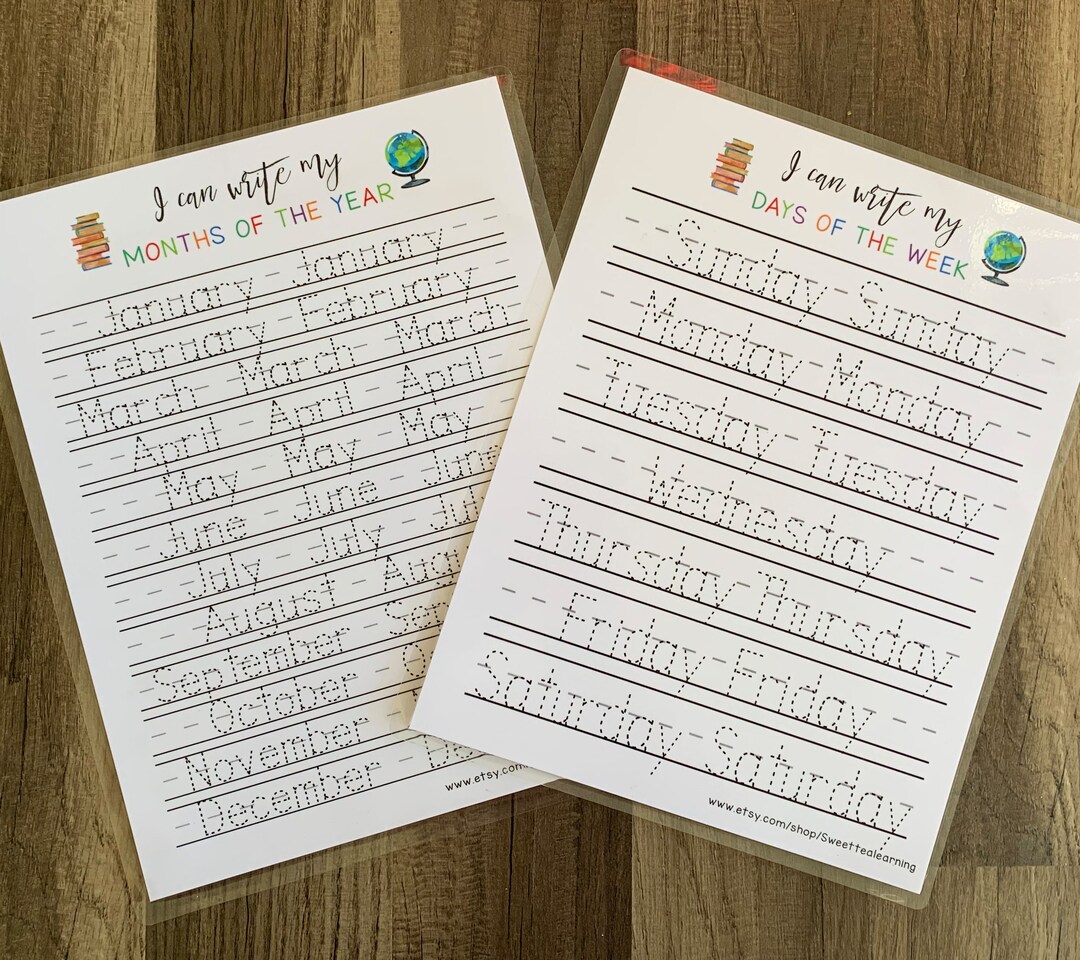 I can write my
MONTHS OF THE YEAR
January January
February February
March March March
April April April
May May May
June June June
July July
August
September
October
November
December
I can write my
DAYS OF THE WEEK
Sunday Sunday
Monday Monday
Tuesday Tuesday
Wednesday
Thursday Thursday
Friday Friday
Saturday Saturday
www.etsy.com/shop/Sweettealearning